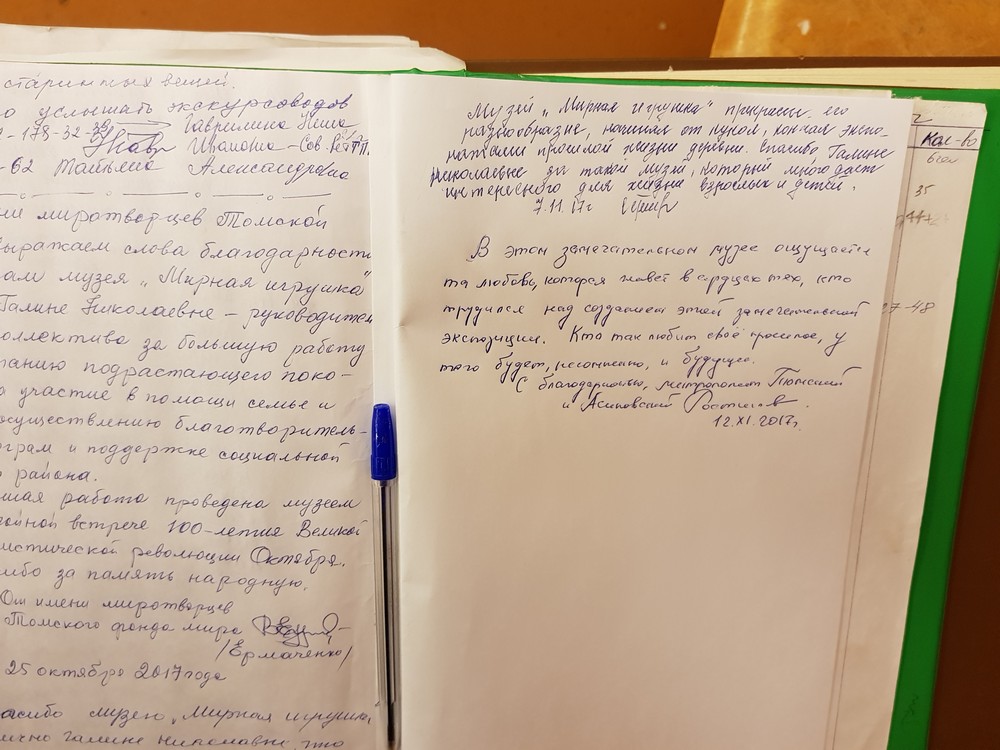 старинных вещей.
о услышать экскурсоводов
-178-32-39 Гаврилина Нина
Ивановна - Сов. рет ТП.
-62 Татьяна Александровна
ни миротворцев Томской
выражаем слова благодарности
ам музея „Мирная игрушка"
Галине Николаевне - руководител
оллектива за большую работу
танию подрастающего поко-
о участие в помощи семье и
осуществлению благотворитель-
ограм и поддержке социальной
района.
шая работа проведена музеем
тойной встрече 100-летия Великой
листической революции Октября.
сибо за память народную.
От имени миротворцев
Томского фонда мира
/Ермаченко/
25 октября 2017 года
пасибо музею „Мирная игрушка,
лично Галине Николаевне, что
Музей „Мирная игрушка" прекрасен его
разнообразие, начиная от кукол, кончая экспо-
натами прошлой жизни деревни. Спасибо, Галине
Николаевне за такой музей, который много даст
интересного для жизни взрослых и детей.
7.11.17г
В этом замечательном музее ощущается
та любовь, которая живет в сердцах тех, кто
трудился над созданием этой замечательной
экспозиции. Кто так любит своё прошлое, у
того будет, несомненно, и будущее.
С благодарностью, митрополит Томский
и Асиновский Ростислав.
12.XI.2017г.
Кол-во
35
27-48